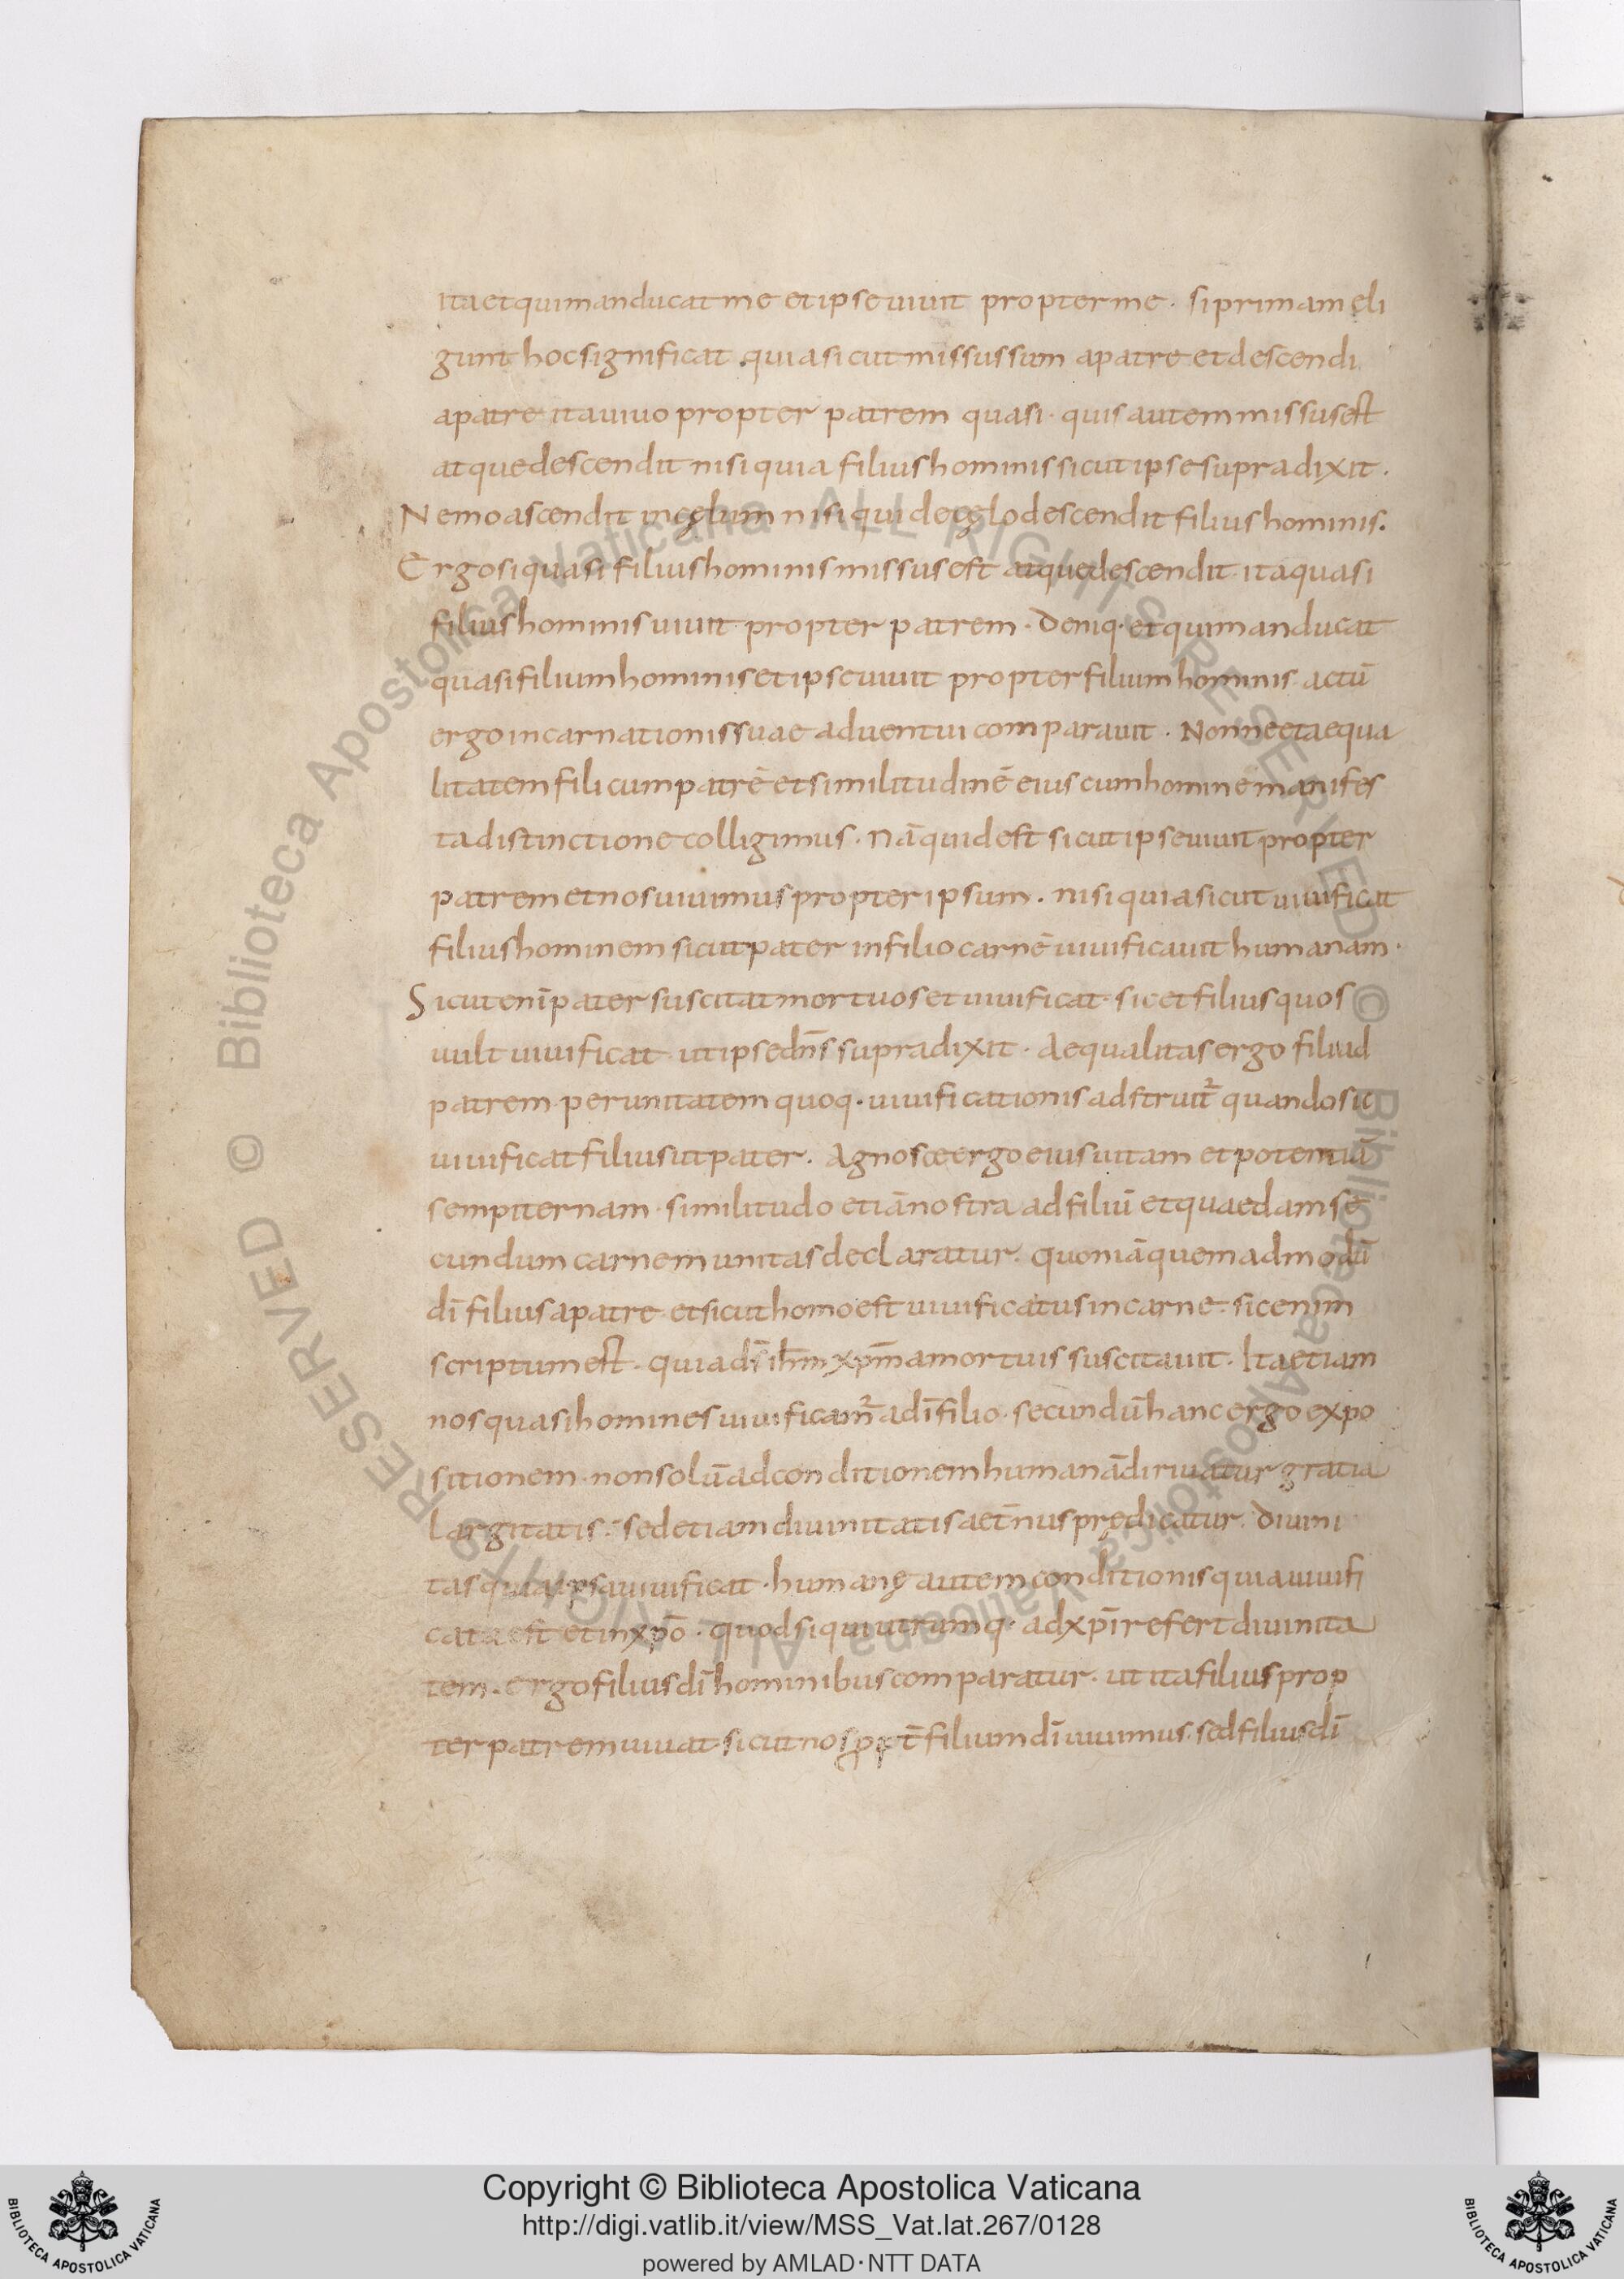 ita et qui manducat me et ipse uiuit propter me · si primam eli
gunt hoc significat · quia sicut missus sum a patre et descendi
a patre ita uiuo propter patrem quasi · quis autem missus est
atque descendit nisi quia filius hominis sicut ipse supra dixit ·
Nemo ascendit in cęlum nisi qui de cęlo descendit filius hominis.
Ergo si quasi filius hominis missus est atque descendit · ita quasi
filius hominis uiuit propter patrem · deniq· et qui manducat
quasi filium hominis et ipse uiuit propter filium hominis actū
ergo incarnationis suae aduentui comparauit · Nonne et aequa
litatem fili cum patrē et similitudinē eius cum homine manifes
ta distinctione colligimus · nā quid est sicut ipse uiuit propter
patrem et nos uiuimus propter ipsum · nisi quia sicut uiuificat
filius hominem sicut pater in filio carnē uiuificauit humanam ·
Sicut enī pater suscitat mortuos et uiuificat · sic et filius quos
uult uiuificat ut ipse dn̄s supra dixit · Aequalitas ergo filii ad
patrem per unitatem quoq· uiuificationis adstruit̃ quando sic
uiuificat filius ut pater · Agnosce ergo eius uitam et potentiā
sempiternam · similitudo etiā nostra ad filiū et quaedam se
cundum carnem unitas declaratur · quoniā quemadmodū
dī filius a patre · et sicut homo est uiuificatus in carne · sic enim
scriptum est · quia ds̄ ih̄m xp̄m a mortuis suscitauit · Ita etiam
nos quasi homines uiuificam̃ a dī filio · secundū hanc ergo expo
sitionem · non solū ad conditionem humanā diriuatur gratia
largitatis · sed etiam diuinitatis aet̄nus prędicatur · diuini
tas quia ipsa uiuificat · humanę autem conditionis quia uiuifi
cata est et in xp̄o · quod si qui utrumq· ad xp̄i refert diuinita
tem · ergo filius dī hominibus comparatur · ut ita filius prop
ter patrem uiuat sicut nos ꝓpt̄ filium dī uiuimus · sed filius dī
Copyright © Biblioteca Apostolica Vaticana
http://digi.vatlib.it/view/MSS_Vat.lat.267/0128
powered by AMLAD · NTT DATA
BIBLIOTECA APOSTOLICA VATICANA
BIBLIOTECA APOSTOLICA VATICANA
© Biblioteca Apostolica Vaticana ALL RIGHTS RESERVED
© Biblioteca Apostolica Vaticana ALL RIGHTS RESERVED